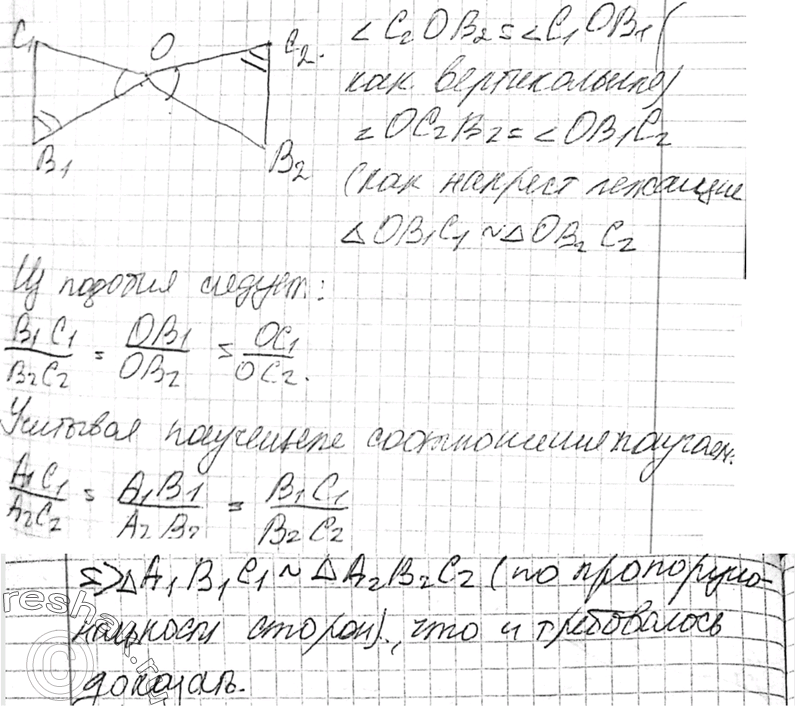 C₁ O C₂.
B₁ B₂
∠C₂OB₂ = ∠C₁OB₁ (
как вертикальные)
∠OC₂B₂ = ∠OB₁C₂
(как накрест лежащие
△OB₁C₁ ~ △OB₂C₂
Из подобия следует:
B₁C₁/B₂C₂ = OB₁/OB₂ = OC₁/OC₂.
Учитывая полученные соотношения получаем.
A₁C₁/A₂C₂ = A₁B₁/A₂B₂ = B₁C₁/B₂C₂
=> △A₁B₁C₁ ~ △A₂B₂C₂ (по пропорцио-
нальности сторон)., что и требовалось
доказать.
reshak.ru